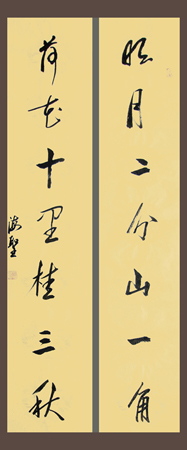 明月二分山一角
荷花十里桂三秋
海聖